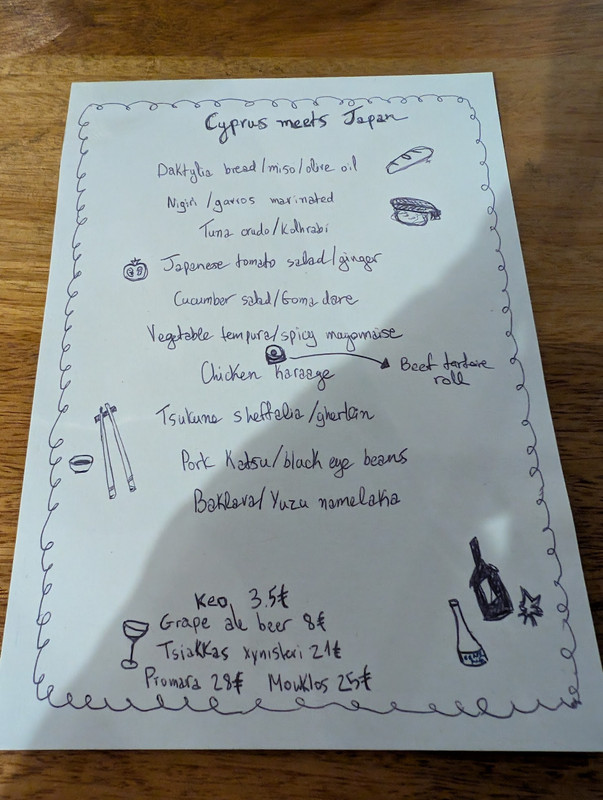 Cyprus meets Japan
Daktylia bread/miso/olive oil
Nigiri/gavros marinated
Tuna crudo/Kolhrabi
Japanese tomato salad/ginger
Cucumber salad/Goma dare
Vegetable tempura/spicy mayonnaise
Chicken karaage
Beef tartare
roll
Tsukune sheftalia/gherkin
Pork Katsu/black eye beans
Baklava/Yuzu namelaka
Keo 3.5€
Grape ale beer 8€
Tsiakkas xynisteri 21€
Promara 28€ Mouklos 25€